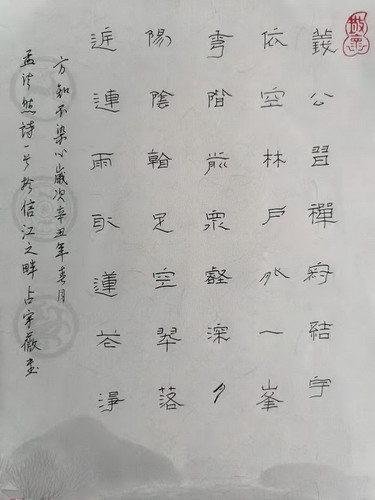 義公習禪寂結宇
依空林戶外一峯
秀階前眾壑深夕
陽陰翰足空翠落
近連雨取蓮花淨
方知不染心歲次辛丑年春月
孟浩然詩一首於信江之畔占宇薇書